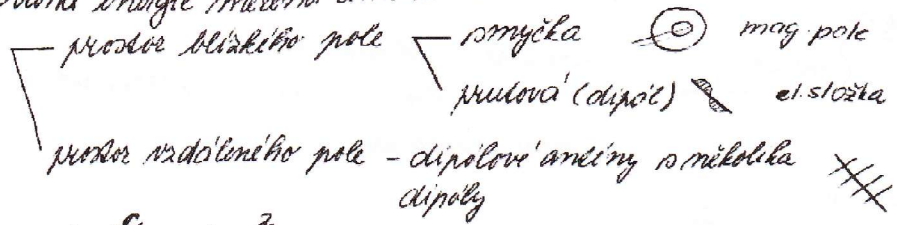 energie
prostor blízkého pole smyčka mag. pole
prutová (dipól) el. složka
prostor vzdáleného pole - dipólové antény s několika
dipóly